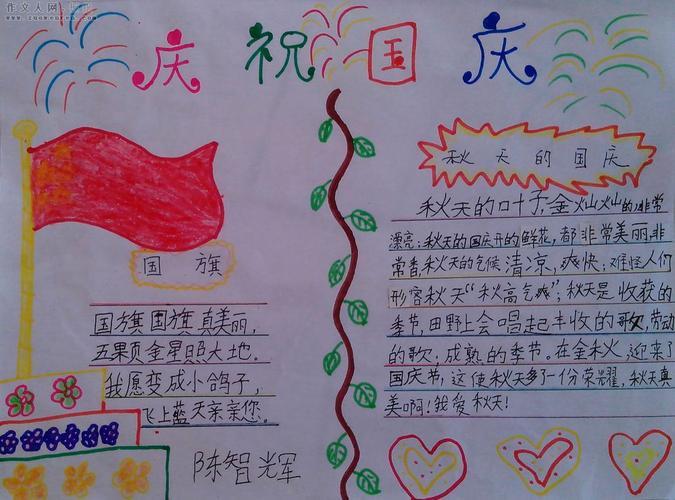 作文人网
www.zuowenren.com
庆祝国庆
国旗
国旗国旗真美丽,
五果页金星照大地。
我愿变成小鸽子,
飞上蓝天亲亲您。
陈智光军
秋天的国庆
秋天的叶子,金灿灿的非常
漂亮;秋天的国庆开的鲜花,都非常美丽,非
常香,秋天的气候清凉,爽快;难怪人们
形容秋天“秋高气爽”;秋天是收获的
季节,田野上会唱起丰收的歌,劳动
的歌;成熟的季节。在金秋迎来了
国庆节,这使秋天多了一份荣耀,秋天真
美啊!我爱秋天!